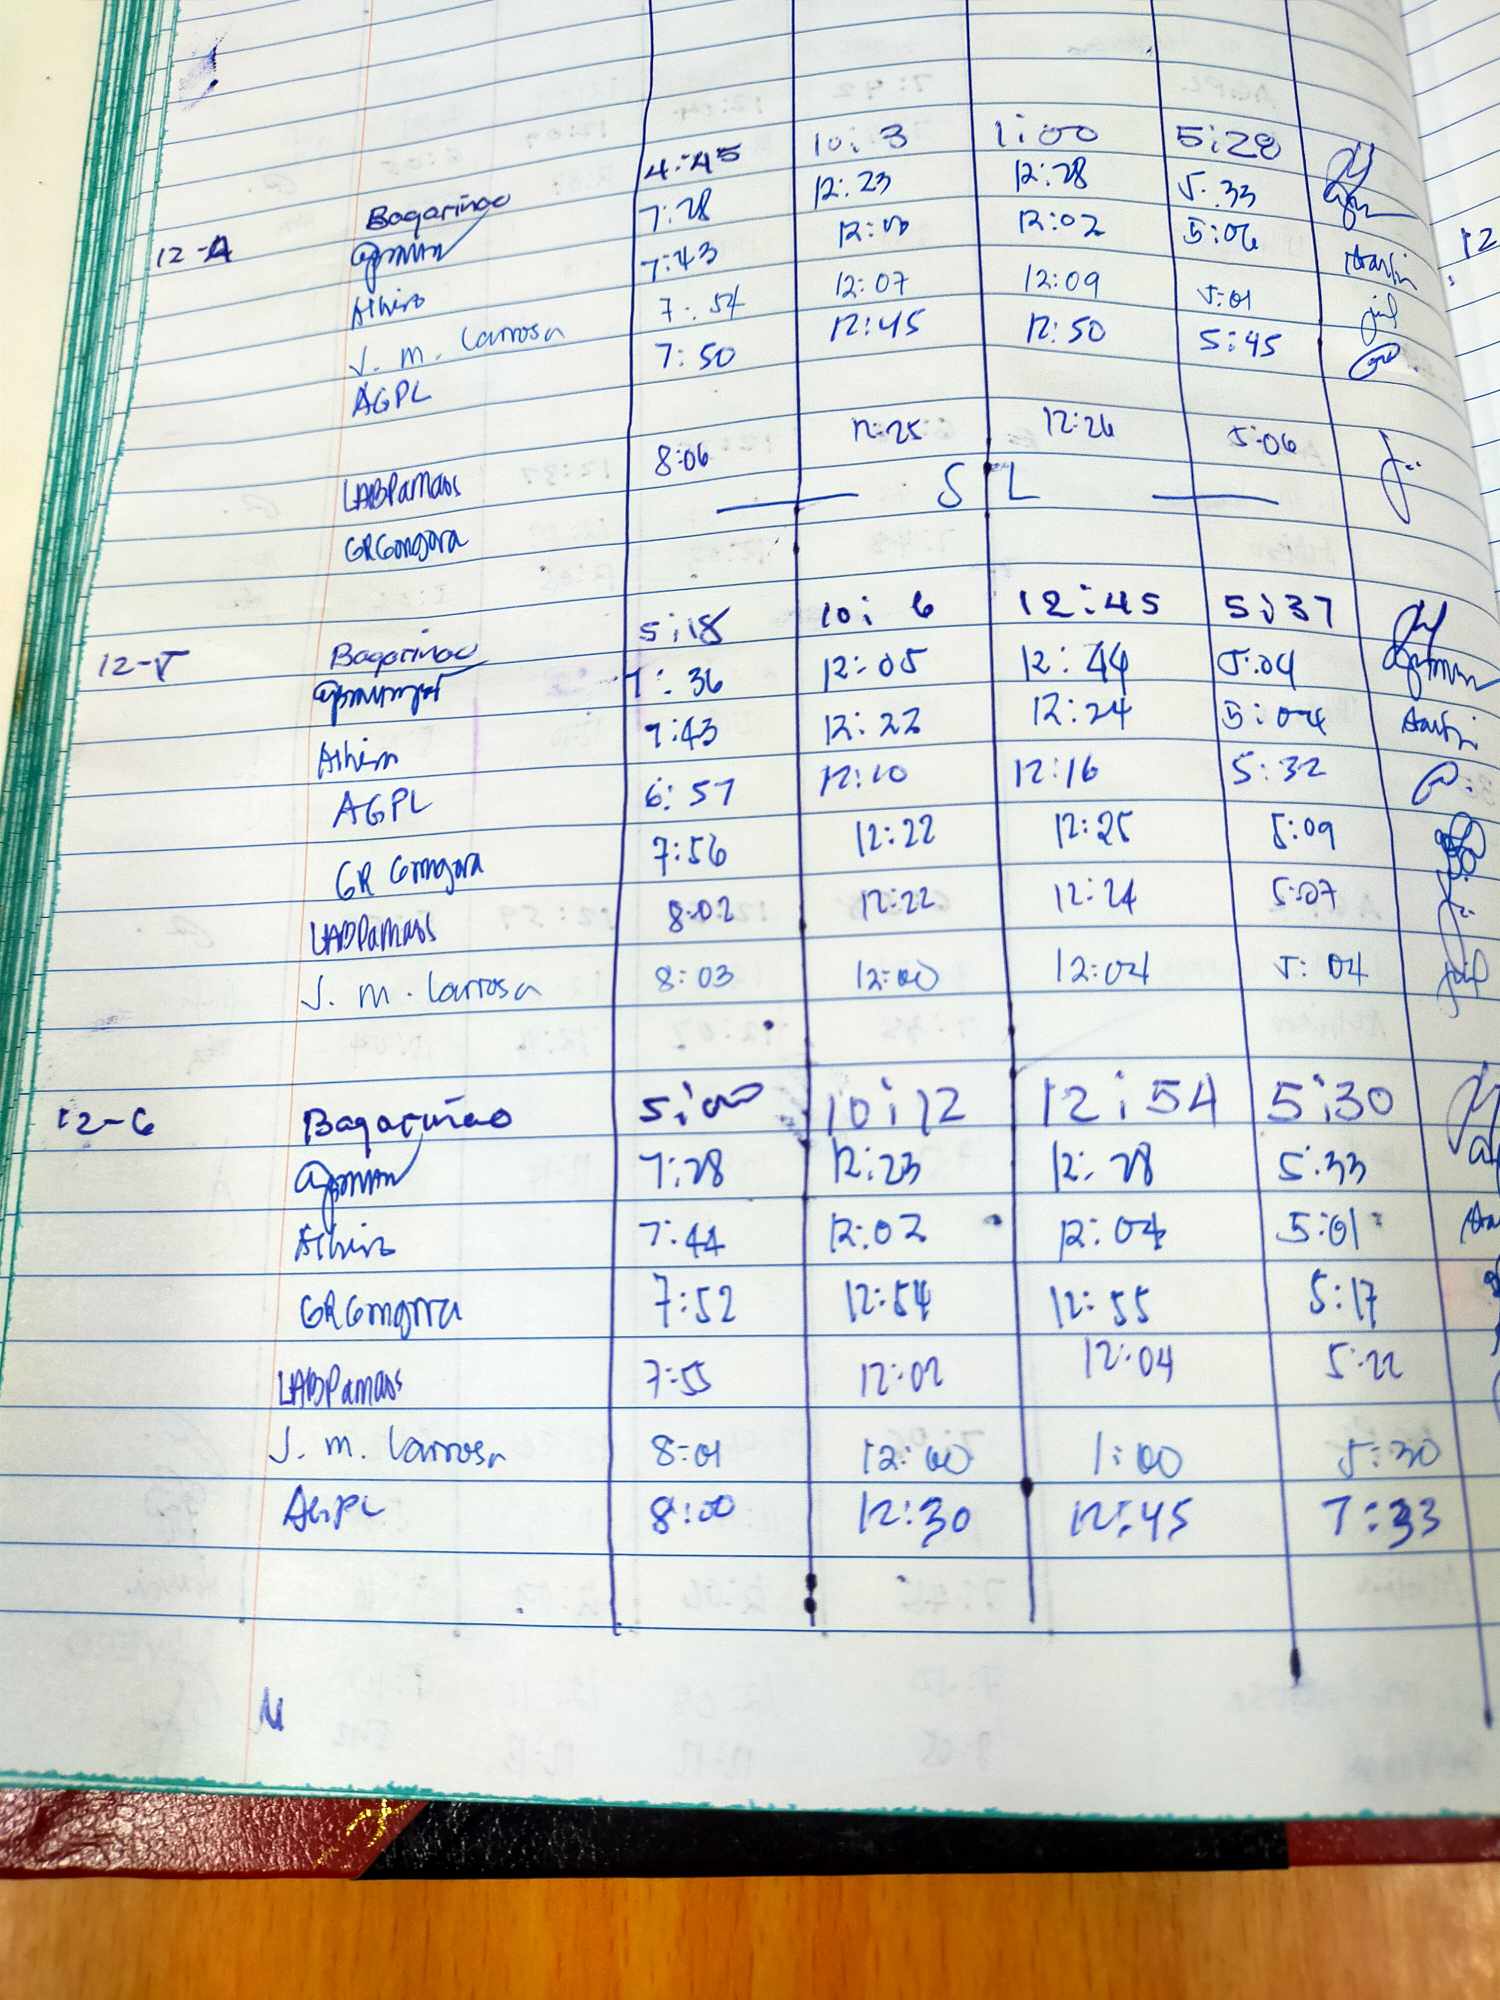 12-4 Bagariñao 4:45 10:3 1:00 5:28
7:28 12:23 12:28 5:33
Athira 7:43 12:00 12:02 5:06
J. m. Larrosa 7:54 12:07 12:09 5:01
AGPL 7:50 12:45 12:50 5:45
LABPamaos 8:06 12:25 12:26 5:06
GRGongora SL
12-5 Bagariñao 5:18 10:6 12:45 5:37
7:36 12:05 12:44 5:04
Athira 7:43 12:22 12:24 5:04
AGPL 6:57 12:10 12:16 5:32
GR Gongora 7:56 12:22 12:25 5:09
LABPamaos 8:02 12:22 12:24 5:07
J. m. Larrosa 8:03 12:00 12:04 5:04
12-6 Bagariñao 5:00 10:12 12:54 5:30
7:28 12:23 12:28 5:33
Athira 7:44 12:02 12:04 5:01
GRGongora 7:52 12:54 12:55 5:17
LABPamaos 7:55 12:02 12:04 5:22
J. m. Larrosa 8:01 12:00 1:00 5:30
AGPL 8:00 12:30 12:45 7:33
12